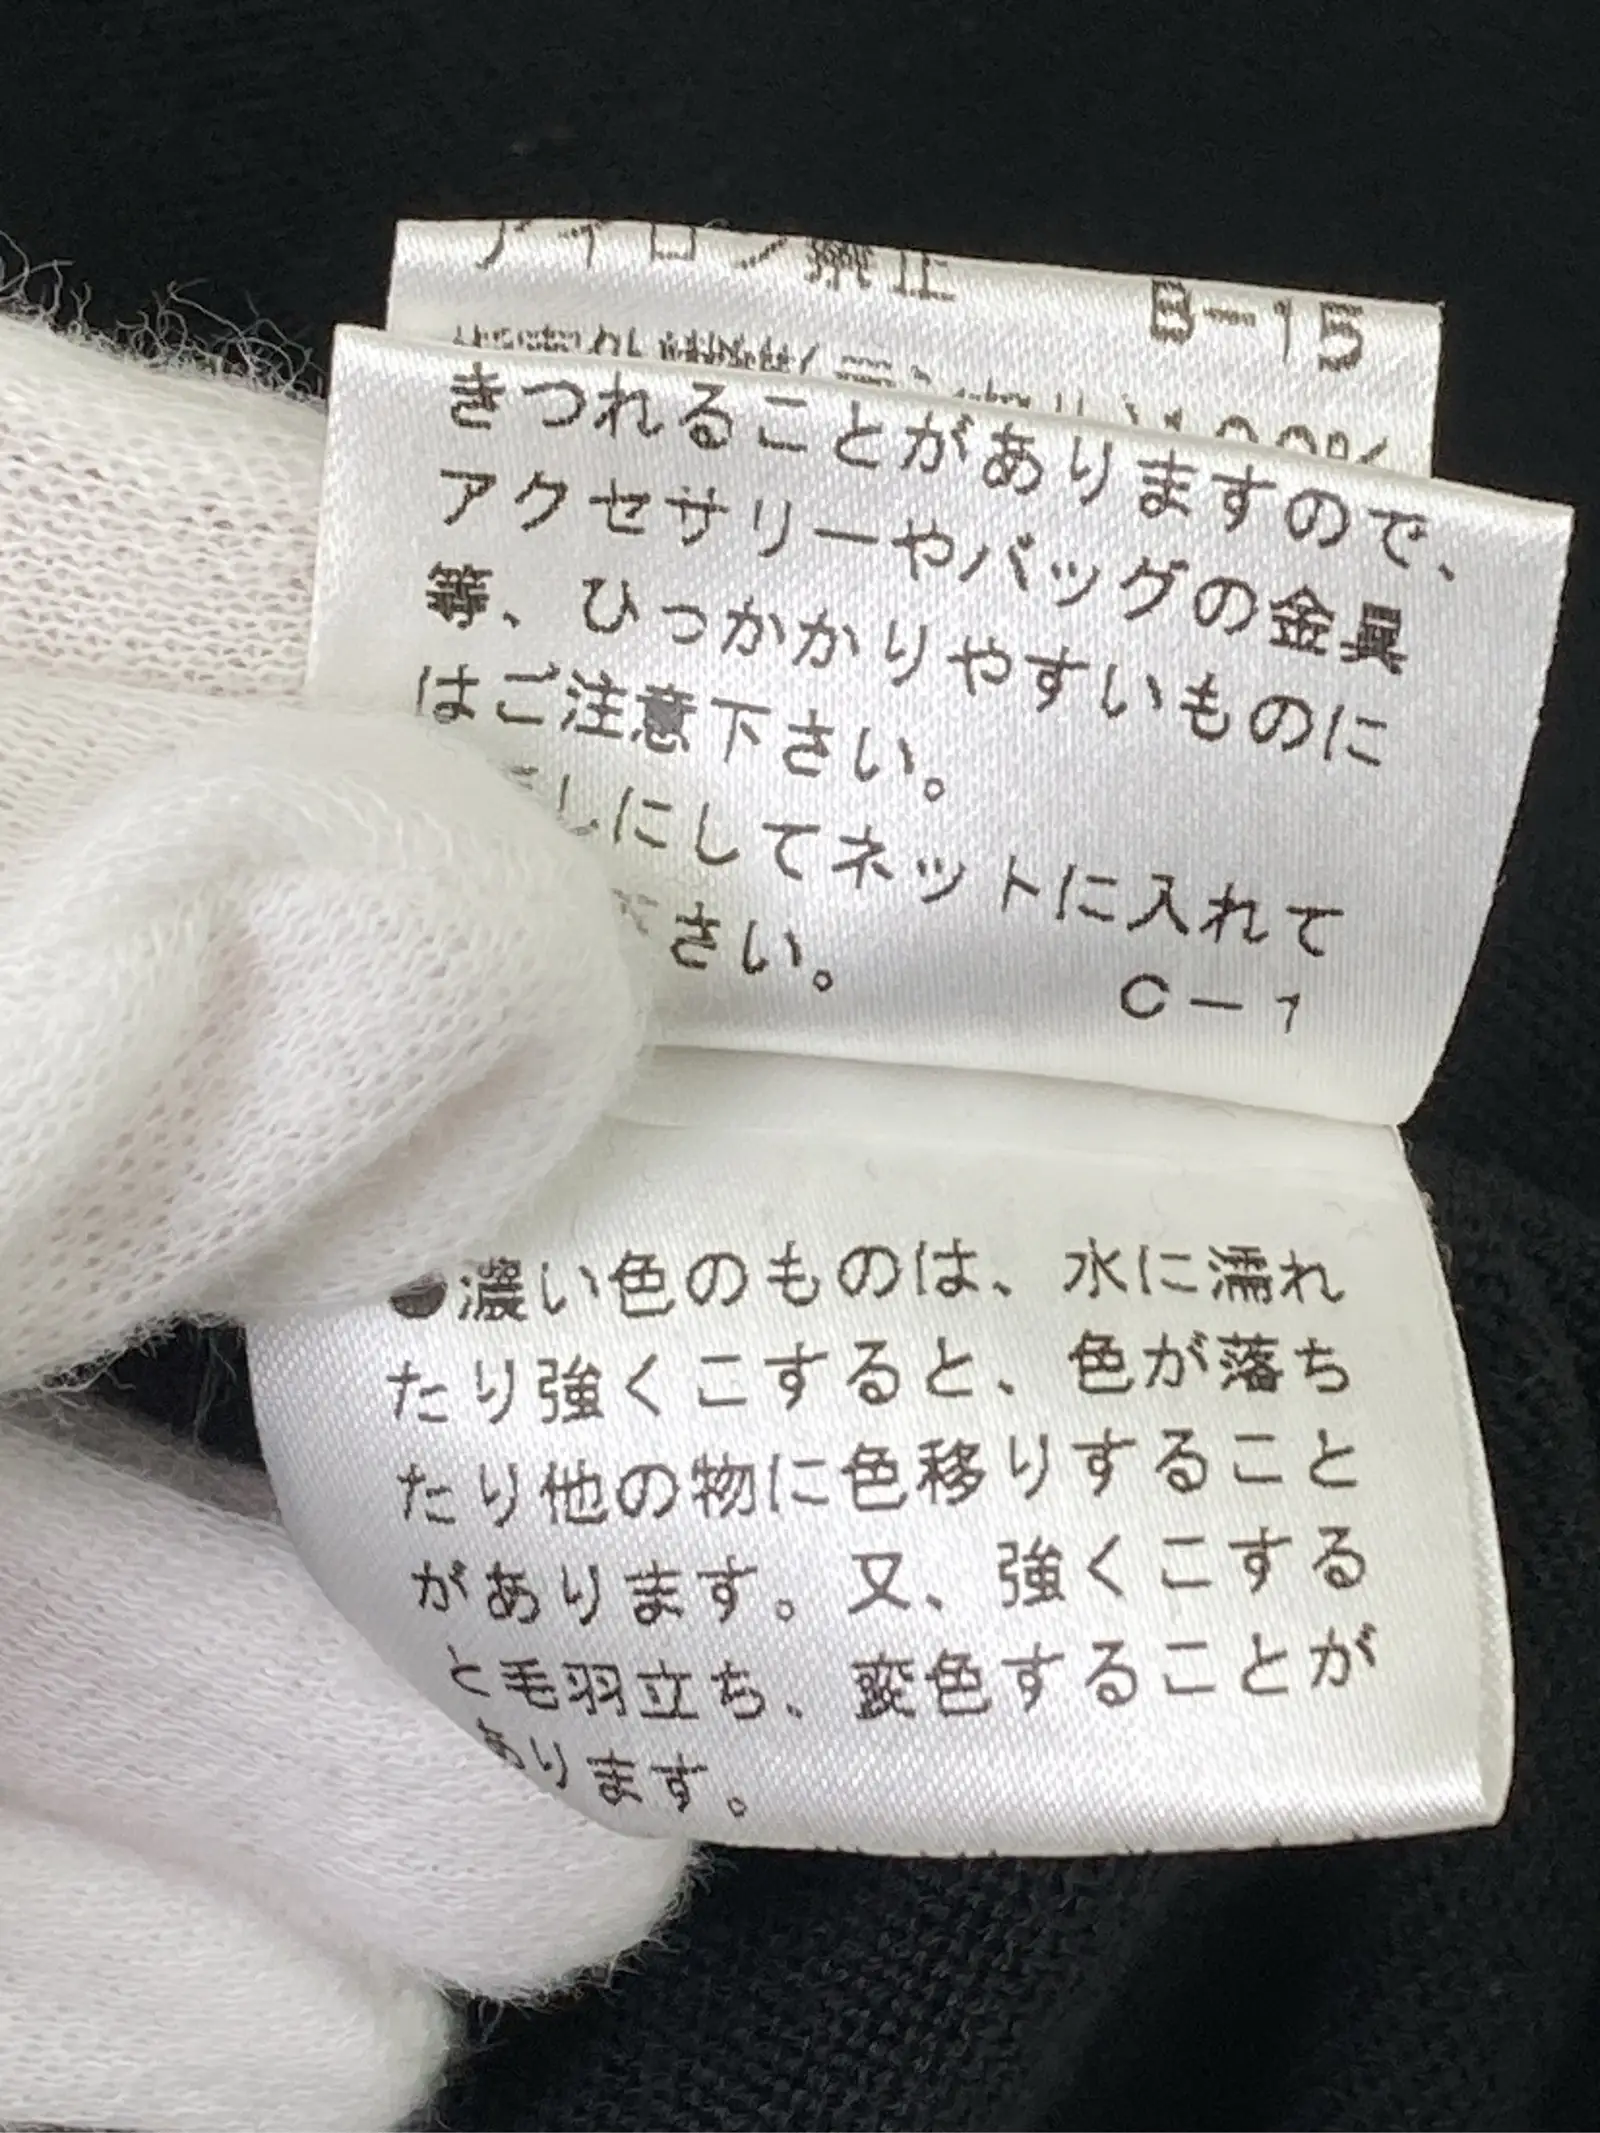 アイロン禁止 B-15
きつれることがありますので、
アクセサリーやバッグの金具
等、ひっかかりやすいものに
はご注意下さい。
しにしてネットに入れて
下さい。
C-1
●濃い色のものは、水に濡れ
たり強くこすると、色が落ち
たり他の物に色移りすること
があります。又、強くこする
と毛羽立ち、変色することが
あります。